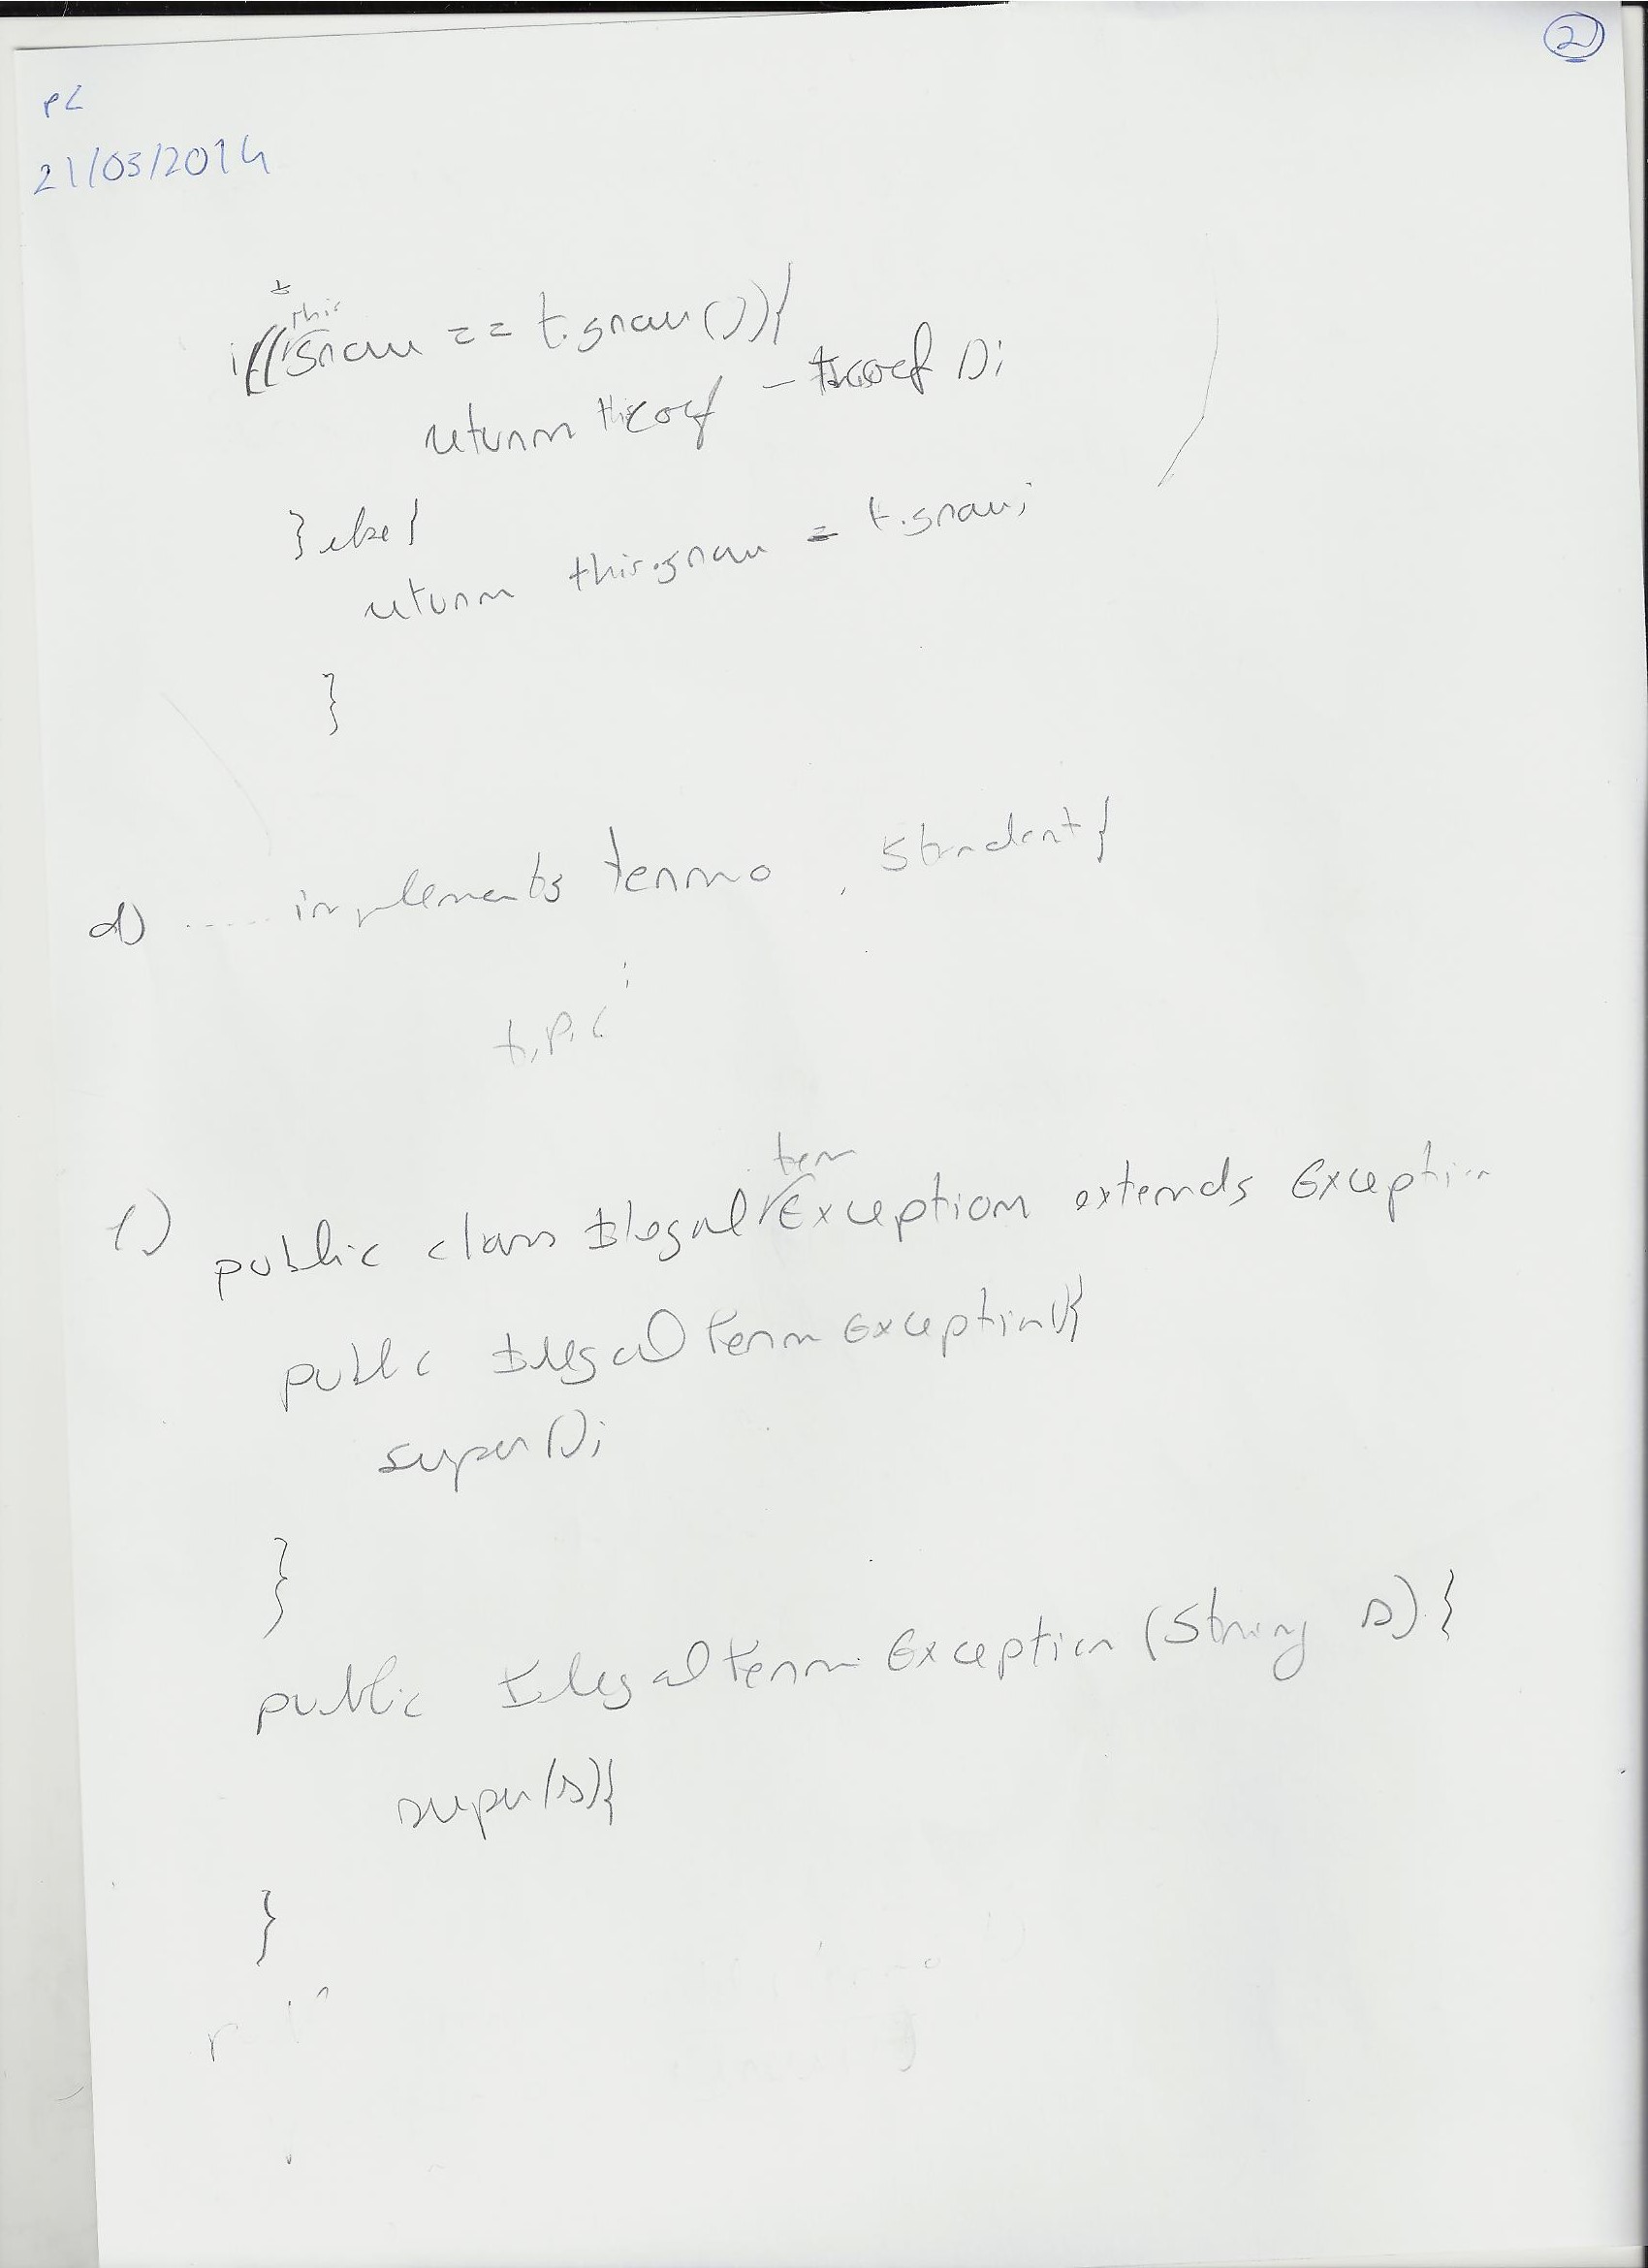 2
PC
21/03/2014
this
if(grau == t.grau()){
return this.coef - t.coef();
}else{
return this.grau = t.grau;
}
d) ..... implements termo, Standart{
t.p.c
term
f) public class IlegalException extends Exception
public IlegalTermException(){
super();
}
public IlegalTermException(String s){
super(s){
}